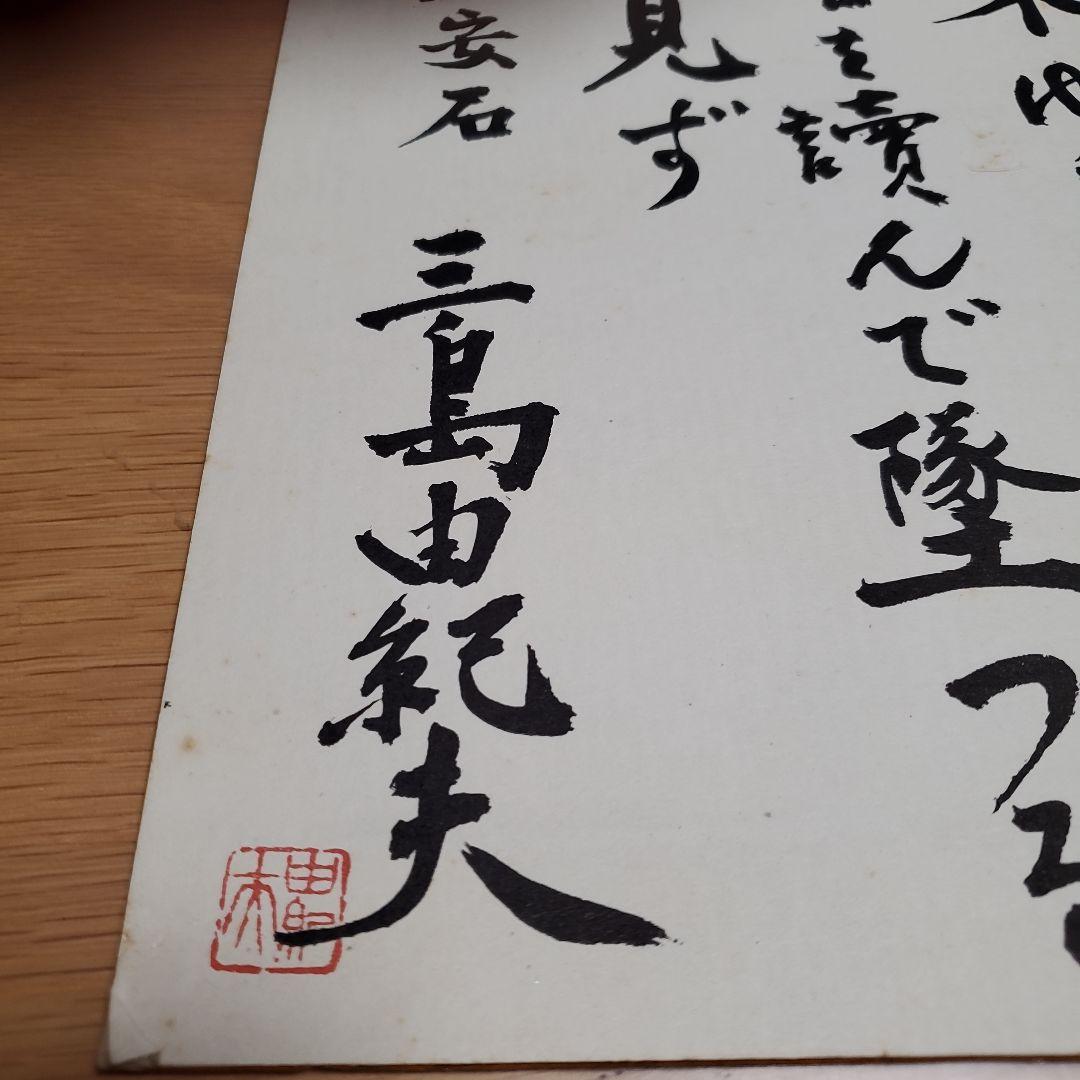 を讀んで墜つる
見ず
安石
三島由紀夫